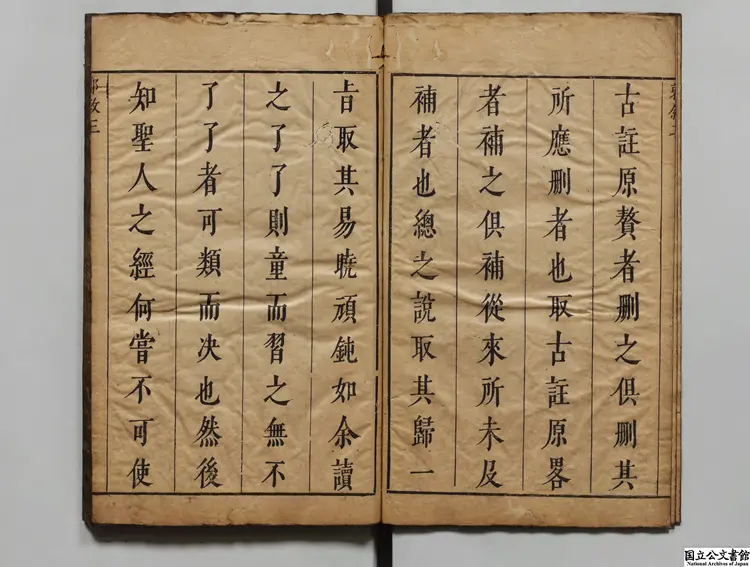 古註原贅者刪之俱刪其
所應刪者也取古註原畧
者補之俱補從來所未及
補者也總之說取其歸一
旨取其易曉頑鈍如余讀
之了了則童而習之無不
了了者可類而决也然後
知聖人之經何嘗不可使
国立公文書館
National Archives of Japan